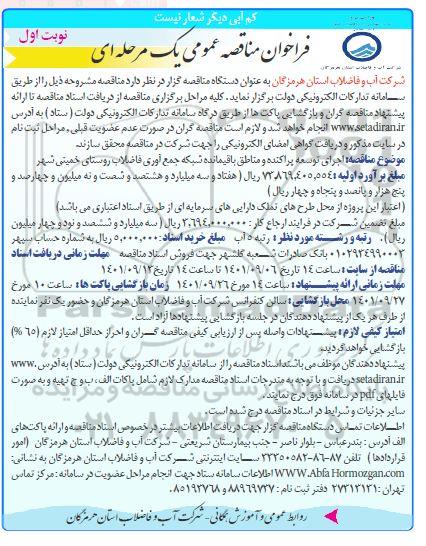 کم آبی دیگر شعار نیست
نوبت اول
فراخوان مناقصه عمومی یک مرحله ای
شرکت آب و فاضلاب استان هرمزگان
شرکت آب و فاضلاب استان هرمزگان به عنوان دستگاه مناقصه گزار در نظر دارد مناقصه مشروحه ذیل را از طریق
سـامانه تدارکات الکترونیکی دولت برگزار نماید. کلیه مراحل برگزاری مناقصه از دریافت اسناد مناقصه تا ارائه
پیشنهاد مناقصه گران و بازگشایی پاکت ها از طریق درگاه سامانه تدارکات الکترونیکی دولت ( ستاد ) به آدرس
www.setadiran.ir انجام خواهد شد و لازم است مناقصه گران در صورت عدم عضویت قبلی ، مراحل ثبت نام
در سایت مذکور و دریافت گواهی امضای الکترونیکی را جهت شرکت در مناقصه محقق سازند.
موضوع مناقصه: اجرای توسعه پراکنده و مناطق باقیمانده شبکه جمع آوری فاضلاب روستای خمینی شهر
مبلغ برآورد اولیه : ۷۳,۸۶۹,۴۰۵,۵۰۴ ریال ( هفتاد و سه میلیارد و هشتصد و شصت و نه میلیون و چهارصد و
پنج هزار و پانصد و پنجاه و چهار ریال )
(اعتبار این پروژه از محل طرح های تملک دارایی های سرمایه ای از طریق اسناد اعتباری می باشد)
مبلغ تضمین شـرکت در فرایند ارجاع کار : ۳,۶۹۴,۰۰۰,۰۰۰ ریال ( سه میلیارد و ششصد و نود و چهار میلیون
ریال ). رتبه و رشـــته مورد نظر : رتبه ۵ آب مبلغ خرید اسناد: ۵,۰۰۰,۰۰۰ ریال به شماره حساب سپهر
بانک صادرات شـعبه گلشهر جهت فروش اسناد مناقصه مهلت زمانی دریافت اسناد
مناقصه از سایت : ساعت ۱۴ تاریخ ۱۴۰۱/۰۹/۰۶ تا ساعت ۱۴ تاریخ ۱۴۰۱/۰۹/۱۳
مهلت زمانی ارائه پیشـــنهاد : ساعت ۱۴ مورخ ۱۴۰۱/۰۹/۲۶ زمان بازگشایی پاکت ها : ساعت ۱۰ مورخ
۱۴۰۱/۰۹/۲۷ محل بازگشایی : سالن کنفرانس شرکت آب و فاضلاب استان هرمزگان و حضور یک نفر نماینده
از طرف هر یک از پیشنهاد دهندگان در جلسه بازگشایی پیشنهادها آزاد است.
امتیاز کیفی لازم : پیشـنهادات واصله پس از ارزیابی کیفی مناقصه گــران و احراز حداقل امتیاز لازم (۶۵ %)
بازگشایی خواهد گردید.
پیشنهاد دهندگان موظف می باشند اسناد مناقصه را از سامانه تدارکات الکترونیکی دولت ( ستاد ) به آدرس www.
setadiran.ir دریافت و با توجه به مندرجات اسناد مناقصه مدارک لازم شامل پاکات الف ، ب و ج تهیه و به صورت
فایلهای pdf در سامانه فوق درج نمایند.
سایر جزئیات و شرایط در اسناد مناقصه درج شده است.
اطـلاعات تماس دستگاه مناقصه گزار جهت دریافت اطلاعات بیشتر در خصوص اسناد مناقصه و ارائه پاکت های
الف آدرس : بندرعباس - بلوار ناصر - جنب بیمارستان شریعتی - شرکت آب و فاضلاب استان هرمزگان (امور
قراردادها ) تلفن ۸۷-۸۶-۳۳۳۵۰۵۸۲ سایت اینترنتی شرکت آب و فاضلاب استان هرمزگان به نشانی:
WWW.Abfa Hormozgan.COM اطلاعات سامانه ستاد جهت انجام مراحل عضویت در سامانه : مرکز تماس
تهران : ۲۷۳۱۳۱۳۱ دفتر ثبت نام : ۸۸۹۶۹۷۳۷ و ۸۵۱۹۳۷۶۸
روابط عمومی و آموزش همگانی - شرکت آب و فاضلاب استان هرمزگان